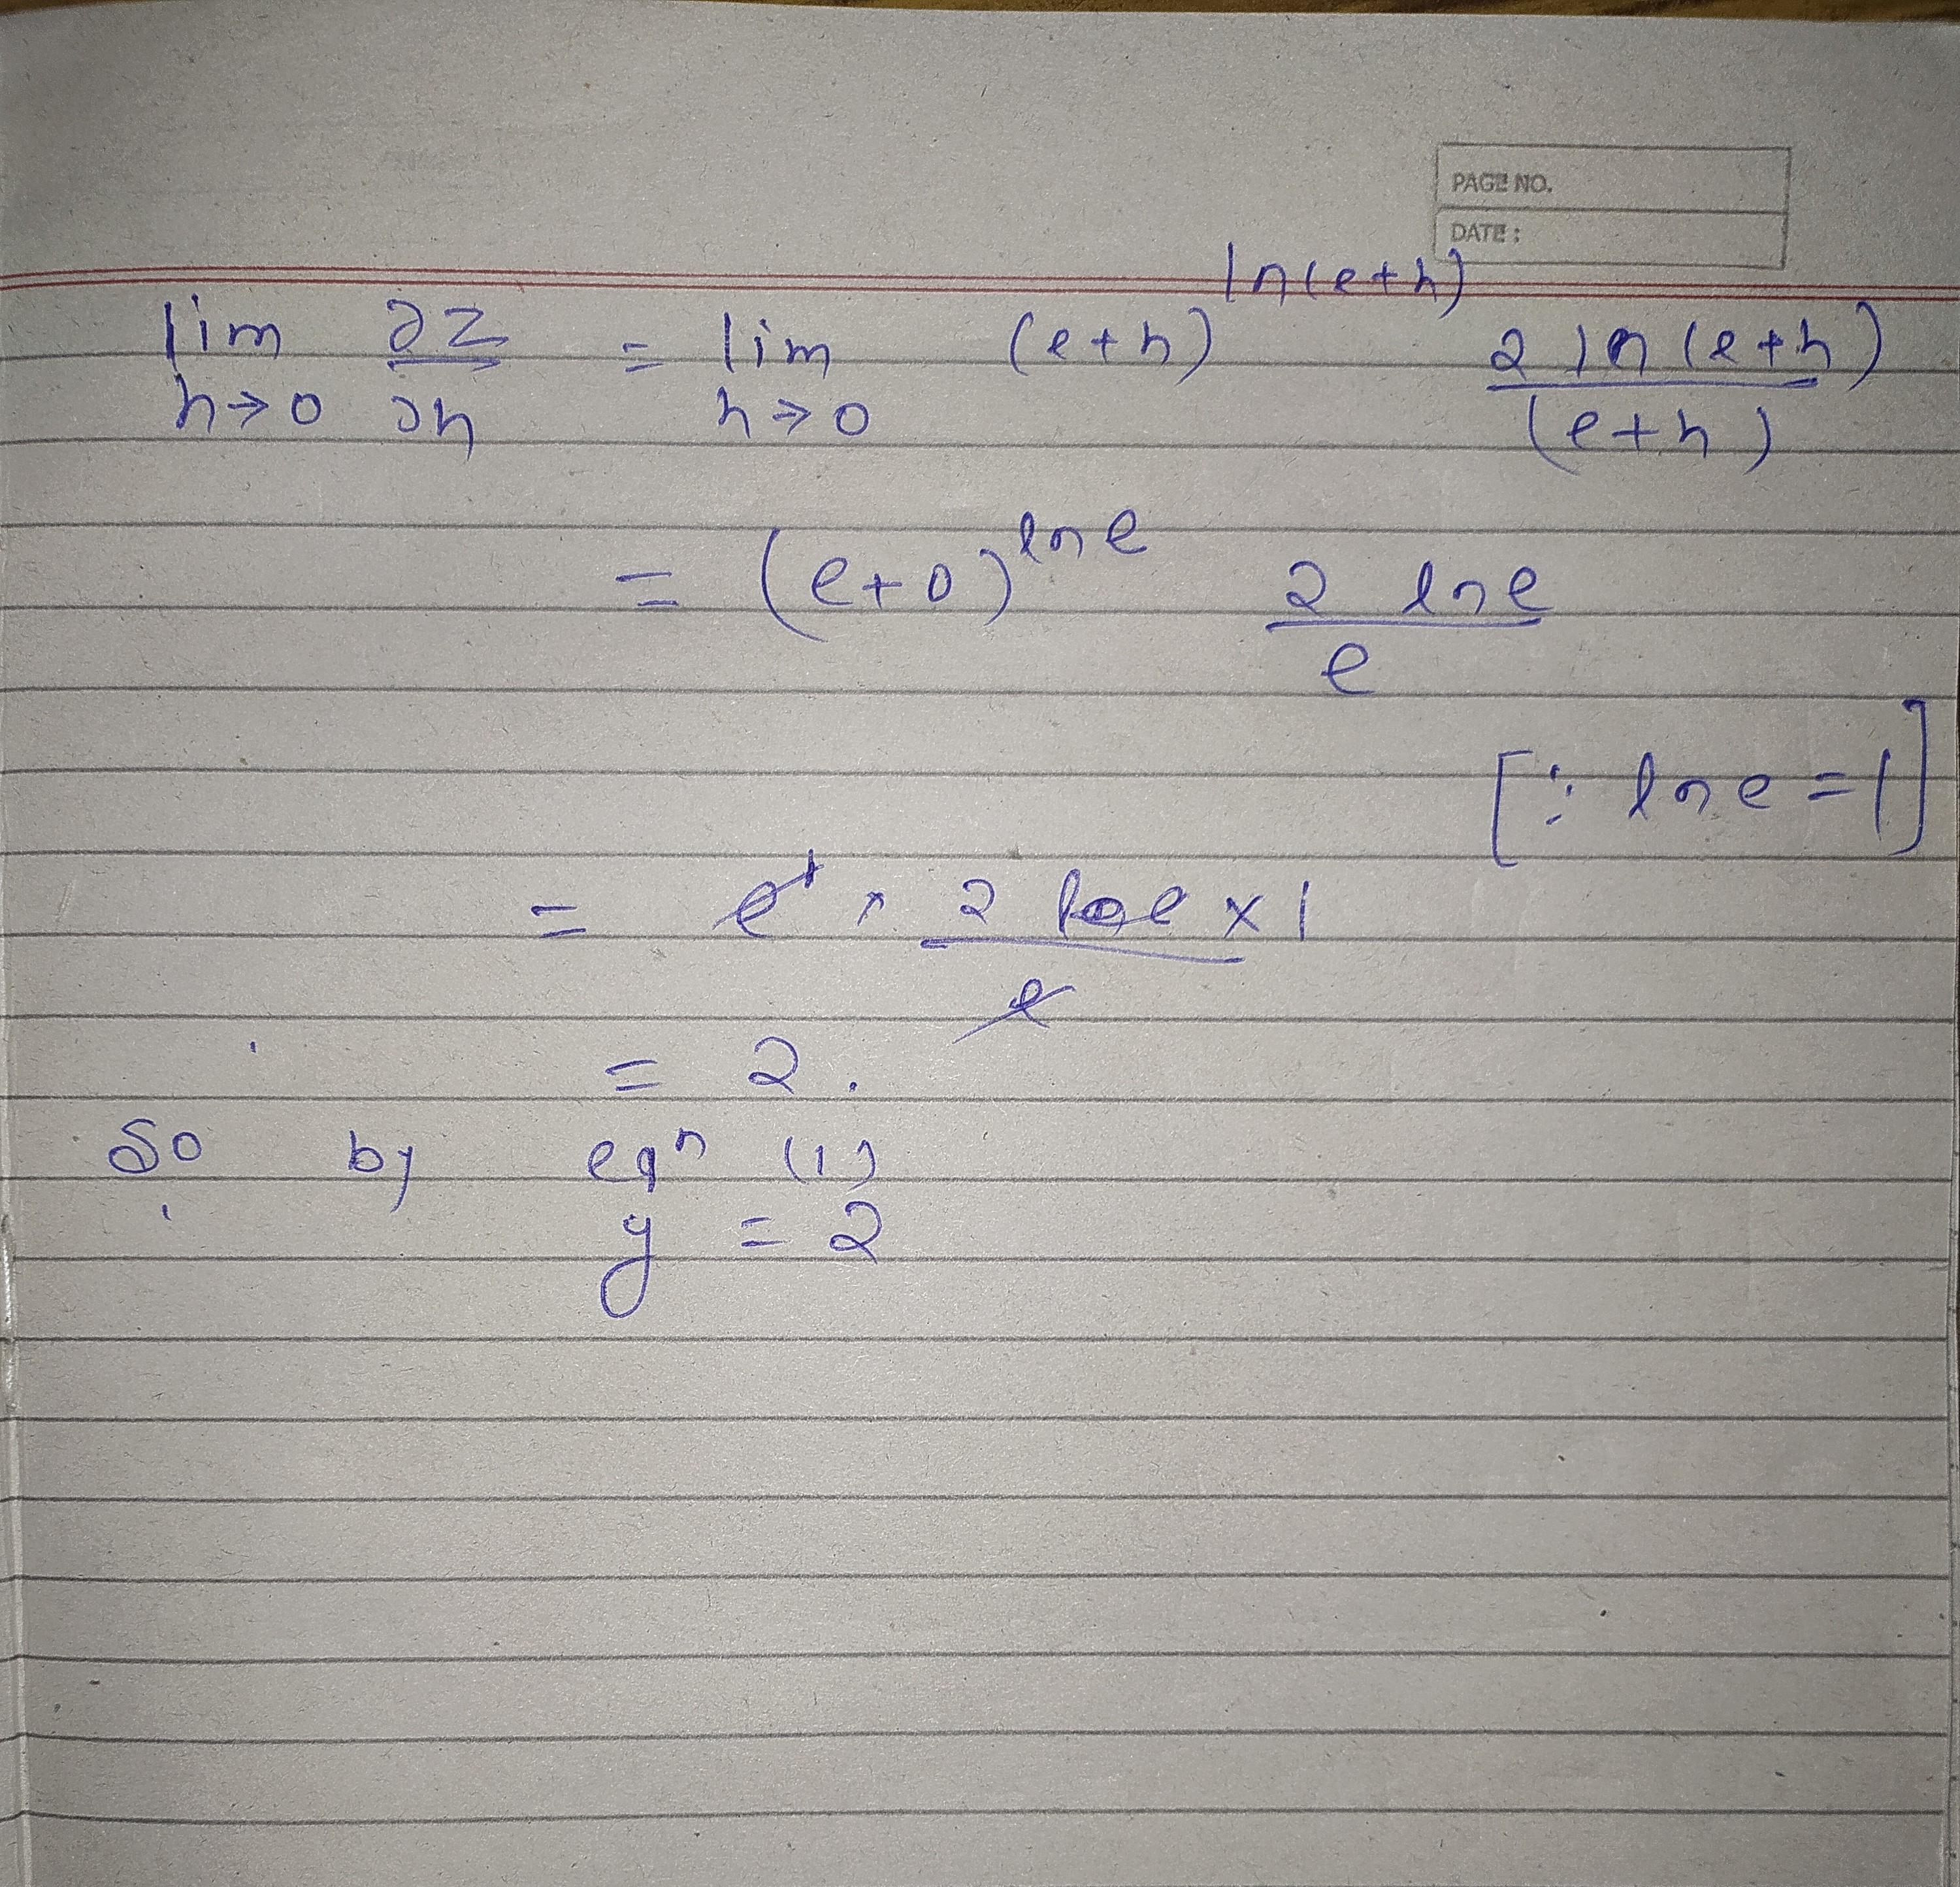 PAGE NO.
DATE :
lim ∂z = lim (e+h)^ln(e+h) 2 ln(e+h)
h→0 ∂h h→0 (e+h)
= (e+0)^ln e 2 ln e
e
[∵ ln e = 1]
= e^1 × 2 × 1
e
= 2.
So by eqⁿ (1)
y = 2